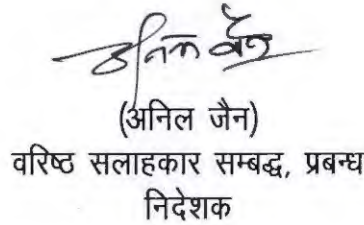 अनिल जैन
(अनिल जैन)
वरिष्ठ सलाहकार सम्बद्ध, प्रबन्ध
निदेशक